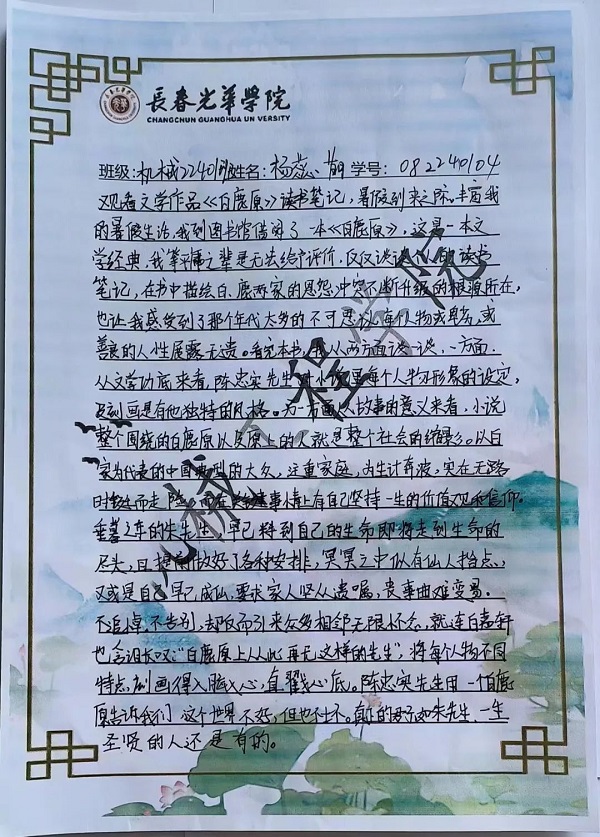 長春光華學院
CHANGCHUN GUANGHUA UN VERSITY
班级:机械22401班姓名:杨蕊 学号:082240104
观看文学作品《白鹿原》读书笔记,暑假到来之际,丰富我
的暑假生活,我到图书馆借阅了一本《白鹿原》,这是一本文
学经典,我等平庸之辈是无法给予评价,仅仅谈谈个人的读书
笔记,在书中描绘白鹿两家的恩怨,冲突不断升级的根源所在,
也让我感受到了那个年代太多的不可思议,每个人物或卑劣,或
善良的人性展露无遗。看完本书,我从两方面谈一谈,一方面,
从文学功底来看,陈忠实先生对小说里每个人物形象的设定,
及刻画是有他独特的风格。另一方面从故事的意义来看,小说
整个围绕的白鹿原以及原上的人就是整个社会的缩影。以白
家为代表的中国典型的大众,注重家庭,为生计奔波,实在无路
时 而走险,而在 事情上有自己坚持一生的价值观和信仰。
垂暮之年的朱先生,早已料到自己的生命即将走到生命的
尽头,且提前做好了各种安排,冥冥之中似有仙人指点,
又或是自己早已成仙,要求家人坚从遗嘱,丧事曲难变易。
不追悼,不告别,却反而引来众多相邻无限怀念,就连白嘉轩
也会泪长叹:“白鹿原上从此再无这样的先生”,将每个人物不同
特点,刻画得入脑入心,直 心底。陈忠实先生用一個白鹿
原告诉我们 这个世界不好,但也不坏。真正的君子如朱先生,一生
圣贤的人还是有的。
机械工程学院